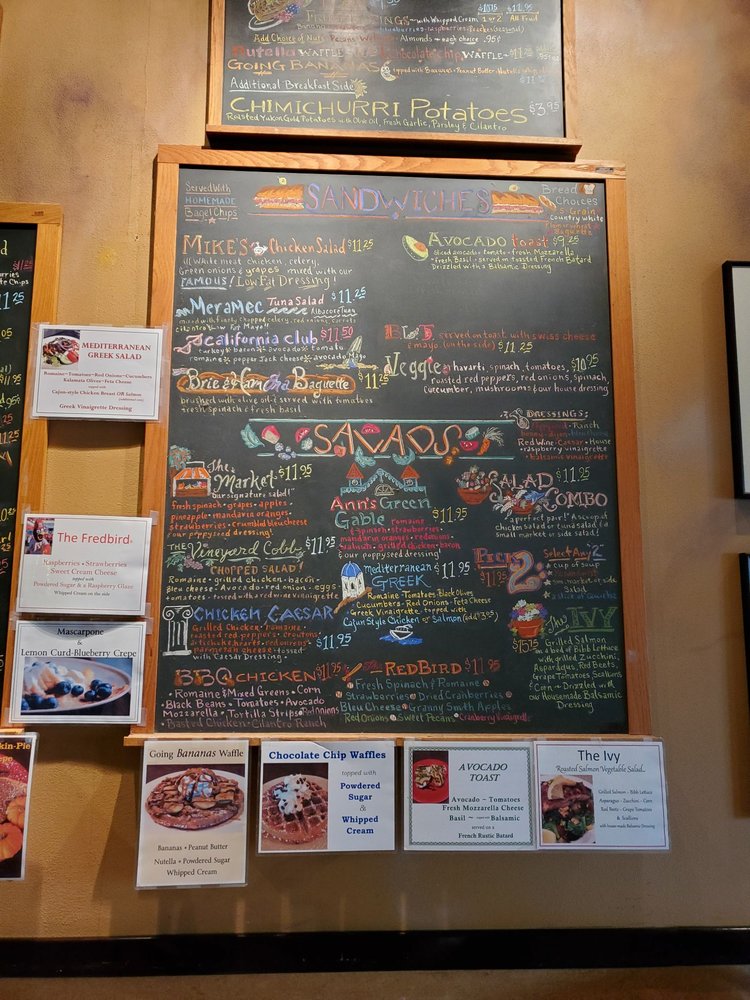 with Whipped Cream
Add Choice of Nuts Pecans
Almonds
each choice .95¢
Nutella WAFFLE
Chocolate chip WAFFLE
GOING BANANAS
Additional Breakfast Side
CHIMICHURRI Potatoes $3.95
Roasted Yukon Gold Potatoes with Olive Oil, Fresh Garlic, Parsley & Cilantro
Served With
HOMEMADE
Bagel Chips
SANDWICHES
Bread
Choices
9 Grain
Country white
Baguette
MIKE'S Chicken Salad $11.25
All White meat chicken, celery,
Green onions & grapes mixed with our
FAMOUS! Low Fat Dressing!
MERAMEC Tuna Salad $11.25
Albacore Tuna
mixed with finely chopped celery, red onion, carrots
cilantro & Low Fat Mayo!!
California club $11.50
turkey bacon avocado tomato
romaine pepper Jack cheese avocado Mayo
Brie & Ham On a Baguette $11.25
brushed with olive oil & served with tomatoes
fresh spinach & fresh basil
AVOCADO toast $9.25
Sliced avocado tomato fresh Mozzarella
fresh Basil served on toasted French Batard
Drizzled with a Balsamic Dressing
BLT served on toast with swiss cheese
& mayo (on the side) $11.25
Veggie havarti, spinach, tomatoes, $10.95
roasted red peppers, red onions, spinach,
cucumber, mushrooms & our house dressing
SALADS
DRESSINGS:
Ranch
honey dijon
Red Wine Caesar House
raspberry vinaigrette
balsamic vinaigrette
The Market $11.95
our signature salad!
fresh spinach grapes apples
pineapple mandarin oranges
strawberries crumbled bleu cheese
our poppyseed dressing!
THE Vineyard Cobb $11.95
CHOPPED SALAD!
Romaine grilled chicken bacon
Bleu cheese Avocado red onion eggs
tomatoes tossed with a red wine vinaigrette
CHICKEN CAESAR
Grilled Chicken romaine
roasted red peppers croutons
artichoke hearts red onions
parmesan cheese tossed
with Caesar Dressing $11.95
BBQ CHICKEN $11.95
Romaine & Mixed Greens Corn
Black Beans Tomatoes Avocado
Mozzarella Tortilla Strips Red Onions
Roasted Chicken Cilantro Ranch
Ann's Green
Gable $11.95
romaine
& spinach strawberries
mandarin oranges red onions
walnuts grilled chicken bacon
& our poppyseed dressing!
mediterranean
GREEK $11.95
Romaine Tomatoes Black Olives
Cucumbers Red Onions Feta Cheese
Greek Vinaigrette topped with
Cajun Style Chicken or Salmon (add $3.95)
The RED BIRD $11.95
Fresh Spinach & Romaine
Strawberries Dried Cranberries
Bleu Cheese Granny Smith Apples
Red Onions Sweet Pecans Cranberry Vinaigrette
SALAD $11.95
COMBO
a perfect pair! A scoop of
chicken salad or tuna salad & a
small market or side salad!
PICK 2: $11.95
Select Any 2
cup of soup
Salad
The IVY
$15.95
Grilled Salmon
on a bed of Bibb Lettuce
with grilled Zucchini,
Asparagus, Red Beets,
Grape Tomatoes, Scallions
& Corn Drizzled with
our Housemade Balsamic
Dressing
MEDITERRANEAN
GREEK SALAD
Romaine~Tomatoes~Red Onions~Cucumbers
Kalamata Olives~Feta Cheese
topped with
Cajun-style Chicken Breast OR Salmon
Greek Vinaigrette Dressing
The Fredbird
Raspberries • Strawberries
Sweet Cream Cheese
topped with
Powdered Sugar & a Raspberry Glaze
Whipped Cream on the side
Mascarpone
&
Lemon Curd-Blueberry Crepe
Going Bananas Waffle
Bananas • Peanut Butter
Nutella • Powdered Sugar
Whipped Cream
Chocolate Chip Waffles
topped with
Powdered
Sugar
&
Whipped
Cream
AVOCADO
TOAST
Avocado ~ Tomatoes
Fresh Mozzarella Cheese
Basil ~ topped with Balsamic
served on a
French Rustic Batard
The Ivy
Roasted Salmon Vegetable Salad
Grilled Salmon ~ Bibb Lettuce
Asparagus ~ Zucchini ~ Corn
Red Beets ~ Grape Tomatoes
& Scallions
with house made Balsamic Dressing